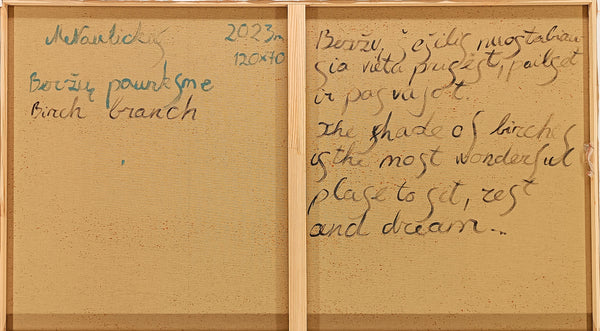 2023m
120x70
Beržų paunksme
Birch branch
Beržų šešėlis nuostabiau
sia vieta prisėst, pailsėt
ir pasvajot.
The shade of birches
is the most wonderful
plase to sit, rest
and dream...